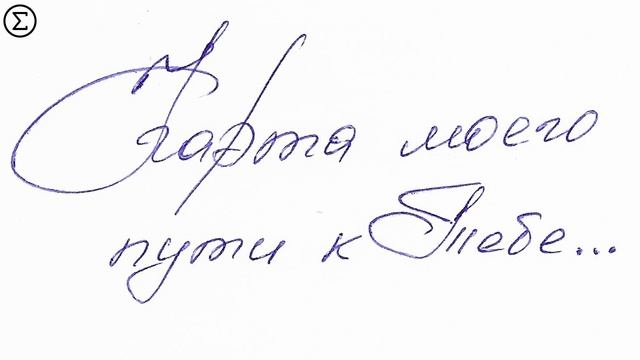 Σ
Карта моего
пути к Тебе...